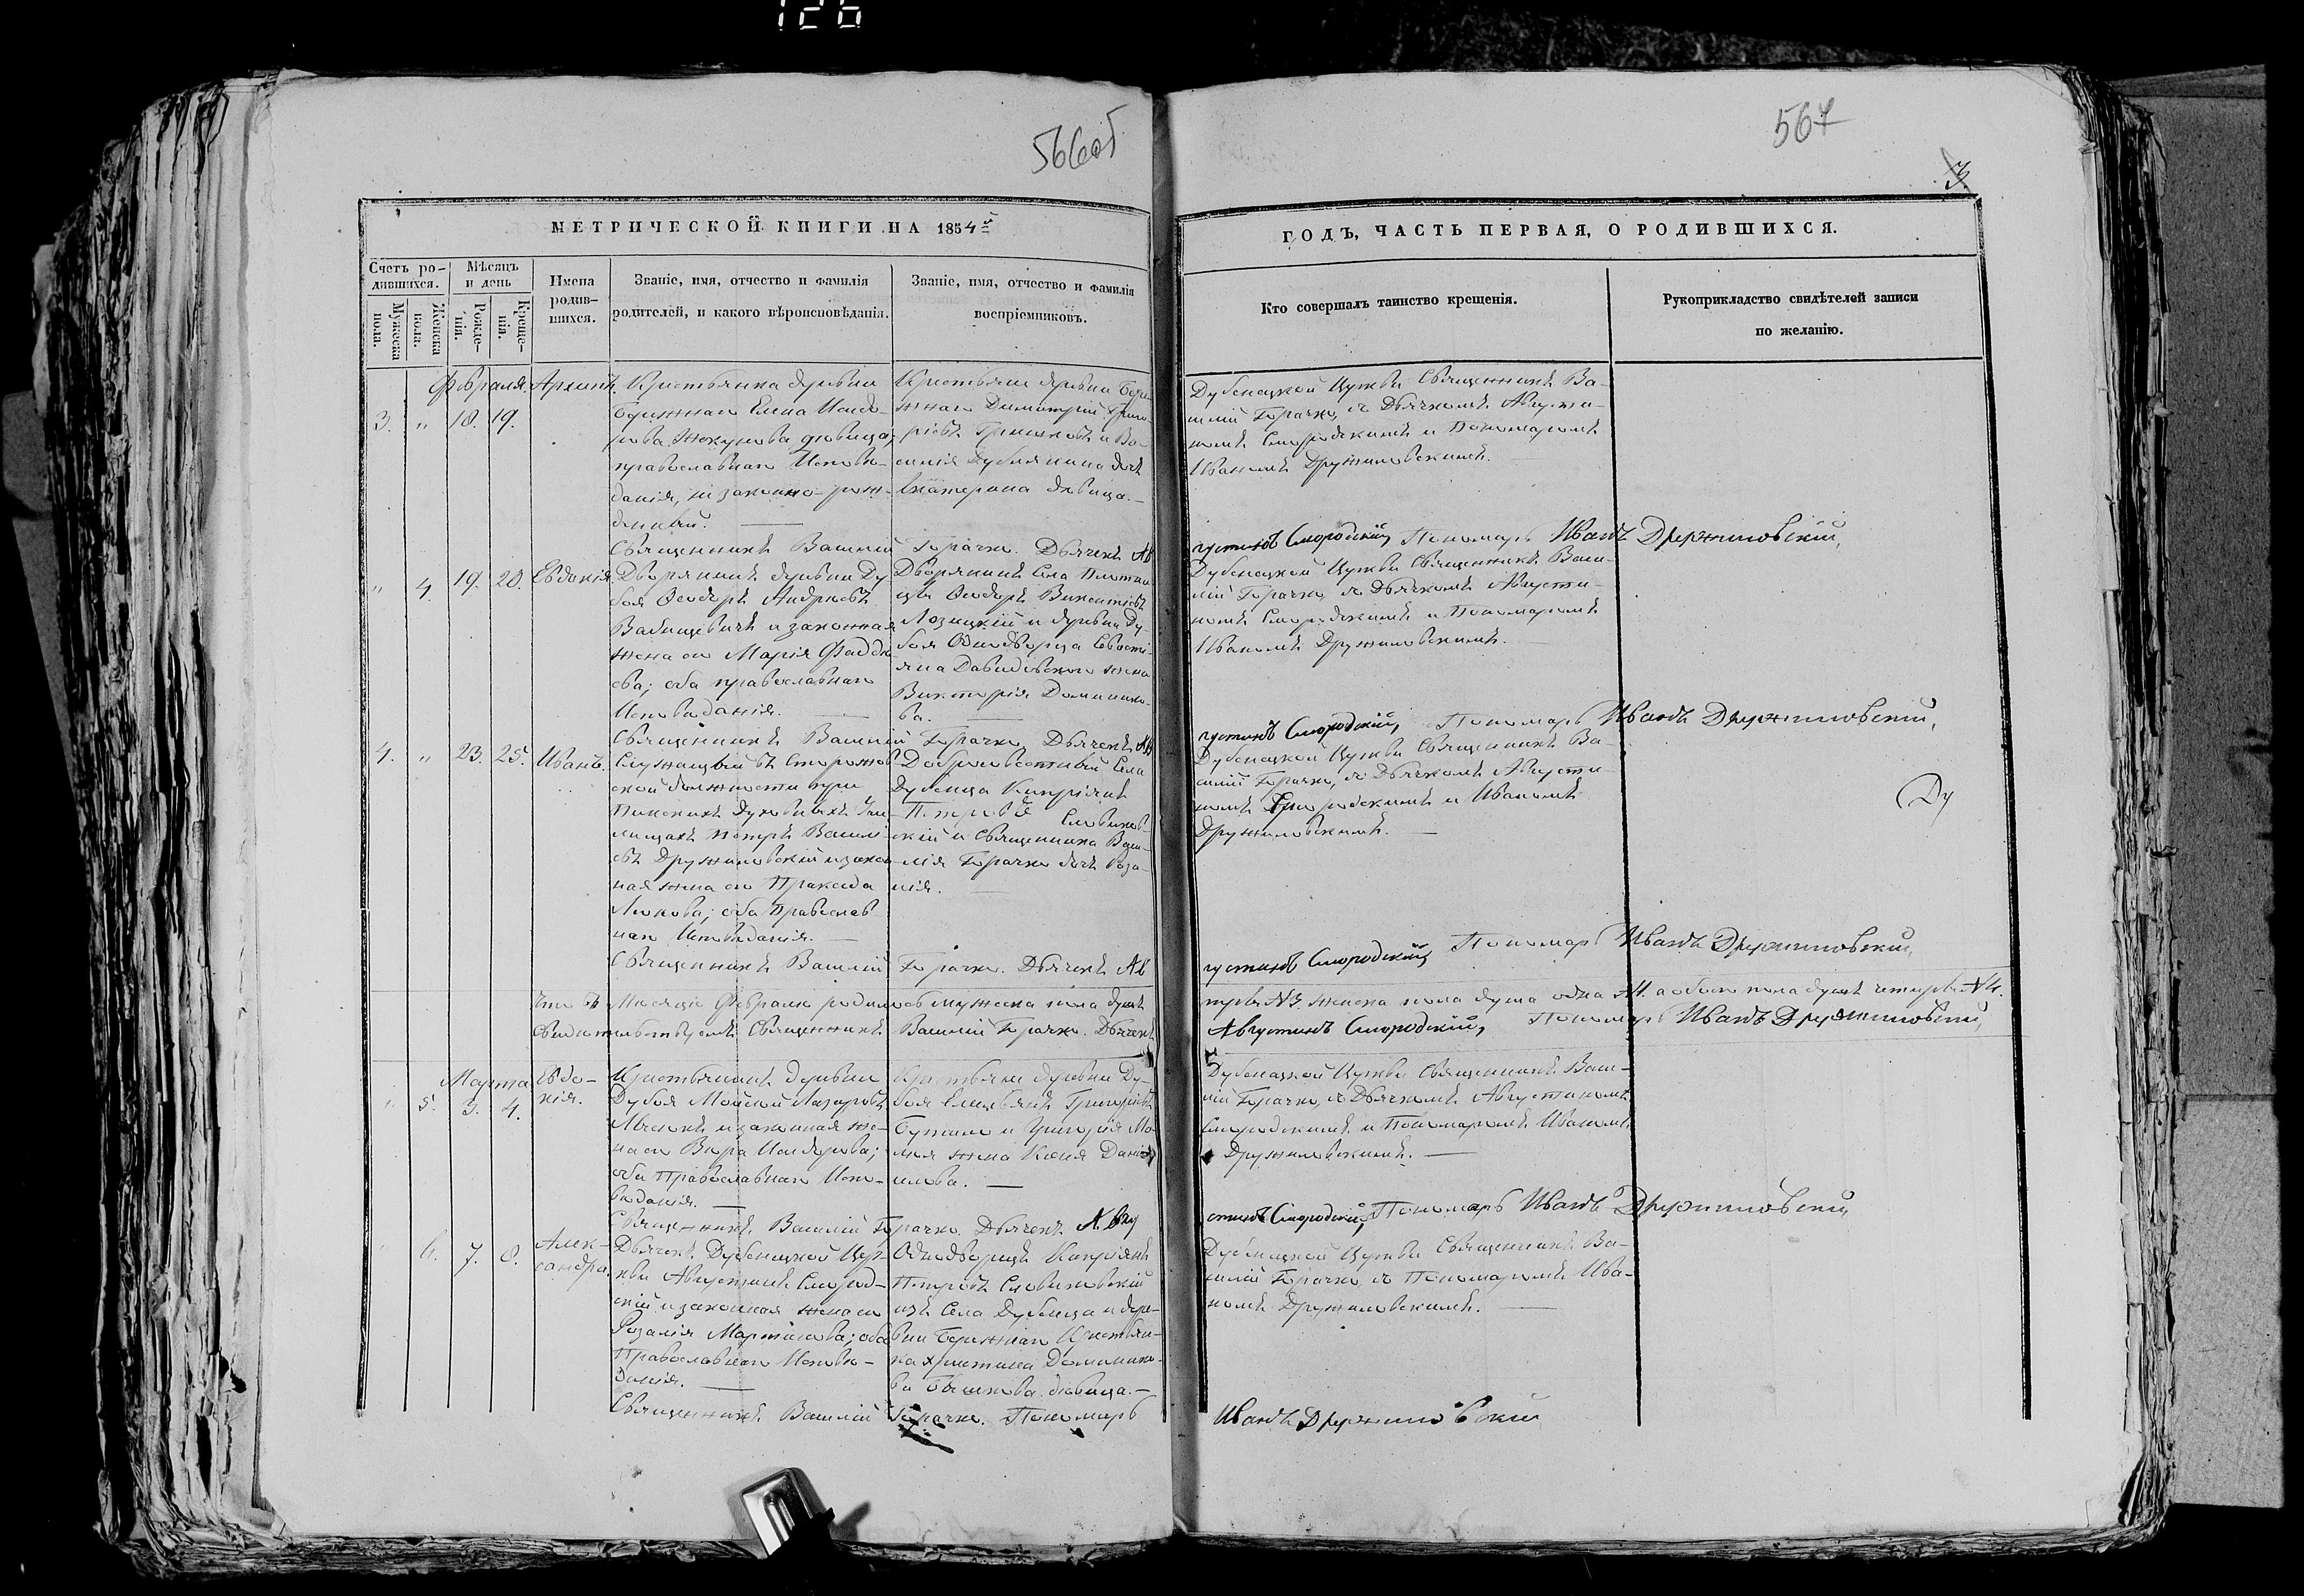 126
566об
567
3.
МЕТРИЧЕСКОЙ КНИГИ НА 1854й
ГОДЪ, ЧАСТЬ ПЕРВАЯ, О РОДИВШИХСЯ.
Счетъ ро-
дившихся.
Мужеска
пола.
Женска
пола.
Мѣсяцъ
и день
Рожде-
нія.
Креще-
нія.
Имена
родив-
шихся.
Званіе, имя, отчество и фамилія
родителей, и какого вѣроисповѣданія.
Званіе, имя, отчество и фамилія
воспріемниковъ.
Кто совершалъ таинство крещенія.
Рукоприкладство свидѣтелей записи
по желанію.
Февраля
3. " 18. 19.
Архипъ.
Крестьянка деревни
Елена Исидо-
рова девица,
православнаго Исповѣ-
данія, незаконно-рож-
денный.
Крестьяне деревни
Димитрій Григо-
ріевъ и Ва-
силія дочь
Екатерина девица.
Дубенецкой Церкви Священникъ Ва-
силій Горачко, съ Дьячкомъ Августи-
номъ Смородскимъ и Пономаремъ
Иваномъ Дружиловскимъ.
Священникъ Василий Горачко. Дьячекъ Ав
густинъ Смородский, Пономарь Иванъ Дружиловский,
" 4. 19. 20.
Евдокія
Дворянинъ деревни Ду
боя Ѳеодоръ Андреевъ
и законная
жена его Марія Фадде
ева; оба православнаго
Исповѣданія.
Дворянинъ Села
Ѳеодоръ Викентіевъ
Лозицкій и деревни Ду
боя Однодворца Севасті
яна жена
Викторія Доминико-
ва.
Дубенецкой Церкви Священникъ Васи-
лій Горачко, съ Дьячкомъ Августи-
номъ Смородскимъ и Пономаремъ
Иваномъ Дружиловскимъ.
Священникъ Василий Горачко, Дьячекъ Ав
густинъ Смородский, Пономарь Иванъ Дружиловский,
4. " 23. 25.
Иванъ.
Служащый въ сторожев
ской должности при
Пинскихъ Духовныхъ Учи
лищахъ Петръ Василі-
евъ Дружиловскій и закон
ная жена его Пракседа
оба Православ
наго Исповѣданія.
Села
Дубенца Кипріянъ
Петровъ
и Священника Васи-
лія Горачко дочь Роза-
лія.
Дубенецкой Церкви Священникъ Ва-
силій Горачко, съ Дьячкомъ Августи-
номъ Смородскимъ и Иваномъ
Дружиловскимъ.
Ду
Священникъ Василий Горачко. Дьячекъ Ав
густинъ Смородский, Пономарь Иванъ Дружиловский,
Что въ Месяце Февралѣ родилось мужеска пола душъ
женска пола душа одна №1. а обоего пола душъ четыре №4.
Священникъ Василий Горачко. Дьячекъ
Августинъ Смородский, Пономарь Иванъ Дружиловский,
Марта
" 5. 3. 4.
Евдо-
кія.
Крестьянинъ деревни
Дубоя Моисей Лазаревъ
и законная же-
на его Вера Исидорова;
оба Православнаго Испо-
веданія.
Крестьяне деревни Ду-
боя Емельянъ Григоріевъ
и Григорія
жена Ксенія Дані
илова.
Дубенецкой Церкви Священникъ Васи-
лій Горачко, съ Дьячкомъ Августиномъ
Смородскимъ и Пономаремъ Иваномъ
Дружиловскимъ.
Священникъ Василий Горачко. Дьячекъ Авгу
стинъ Смородский, Пономарь Иванъ Дружиловский
6. 7. 8.
Алек-
сандра.
Дьячекъ Дубенецкой Цер-
кви Августинъ Смород-
скій и законная жена его
Розалія Мартинова; оба
Православнаго Исповѣ-
данія.
Однодворецъ Кипріянъ
Петровъ
изъ Села Дубенца и дере-
вни Крестьян-
ка Христина Доминико-
ва девица.
Дубенецкой Церкви Священникъ Ва-
силій Горачко, съ Пономаремъ Ива-
номъ Дружиловскимъ.
Священникъ Василий Горачко. Пономарь
Иванъ Дружиловский